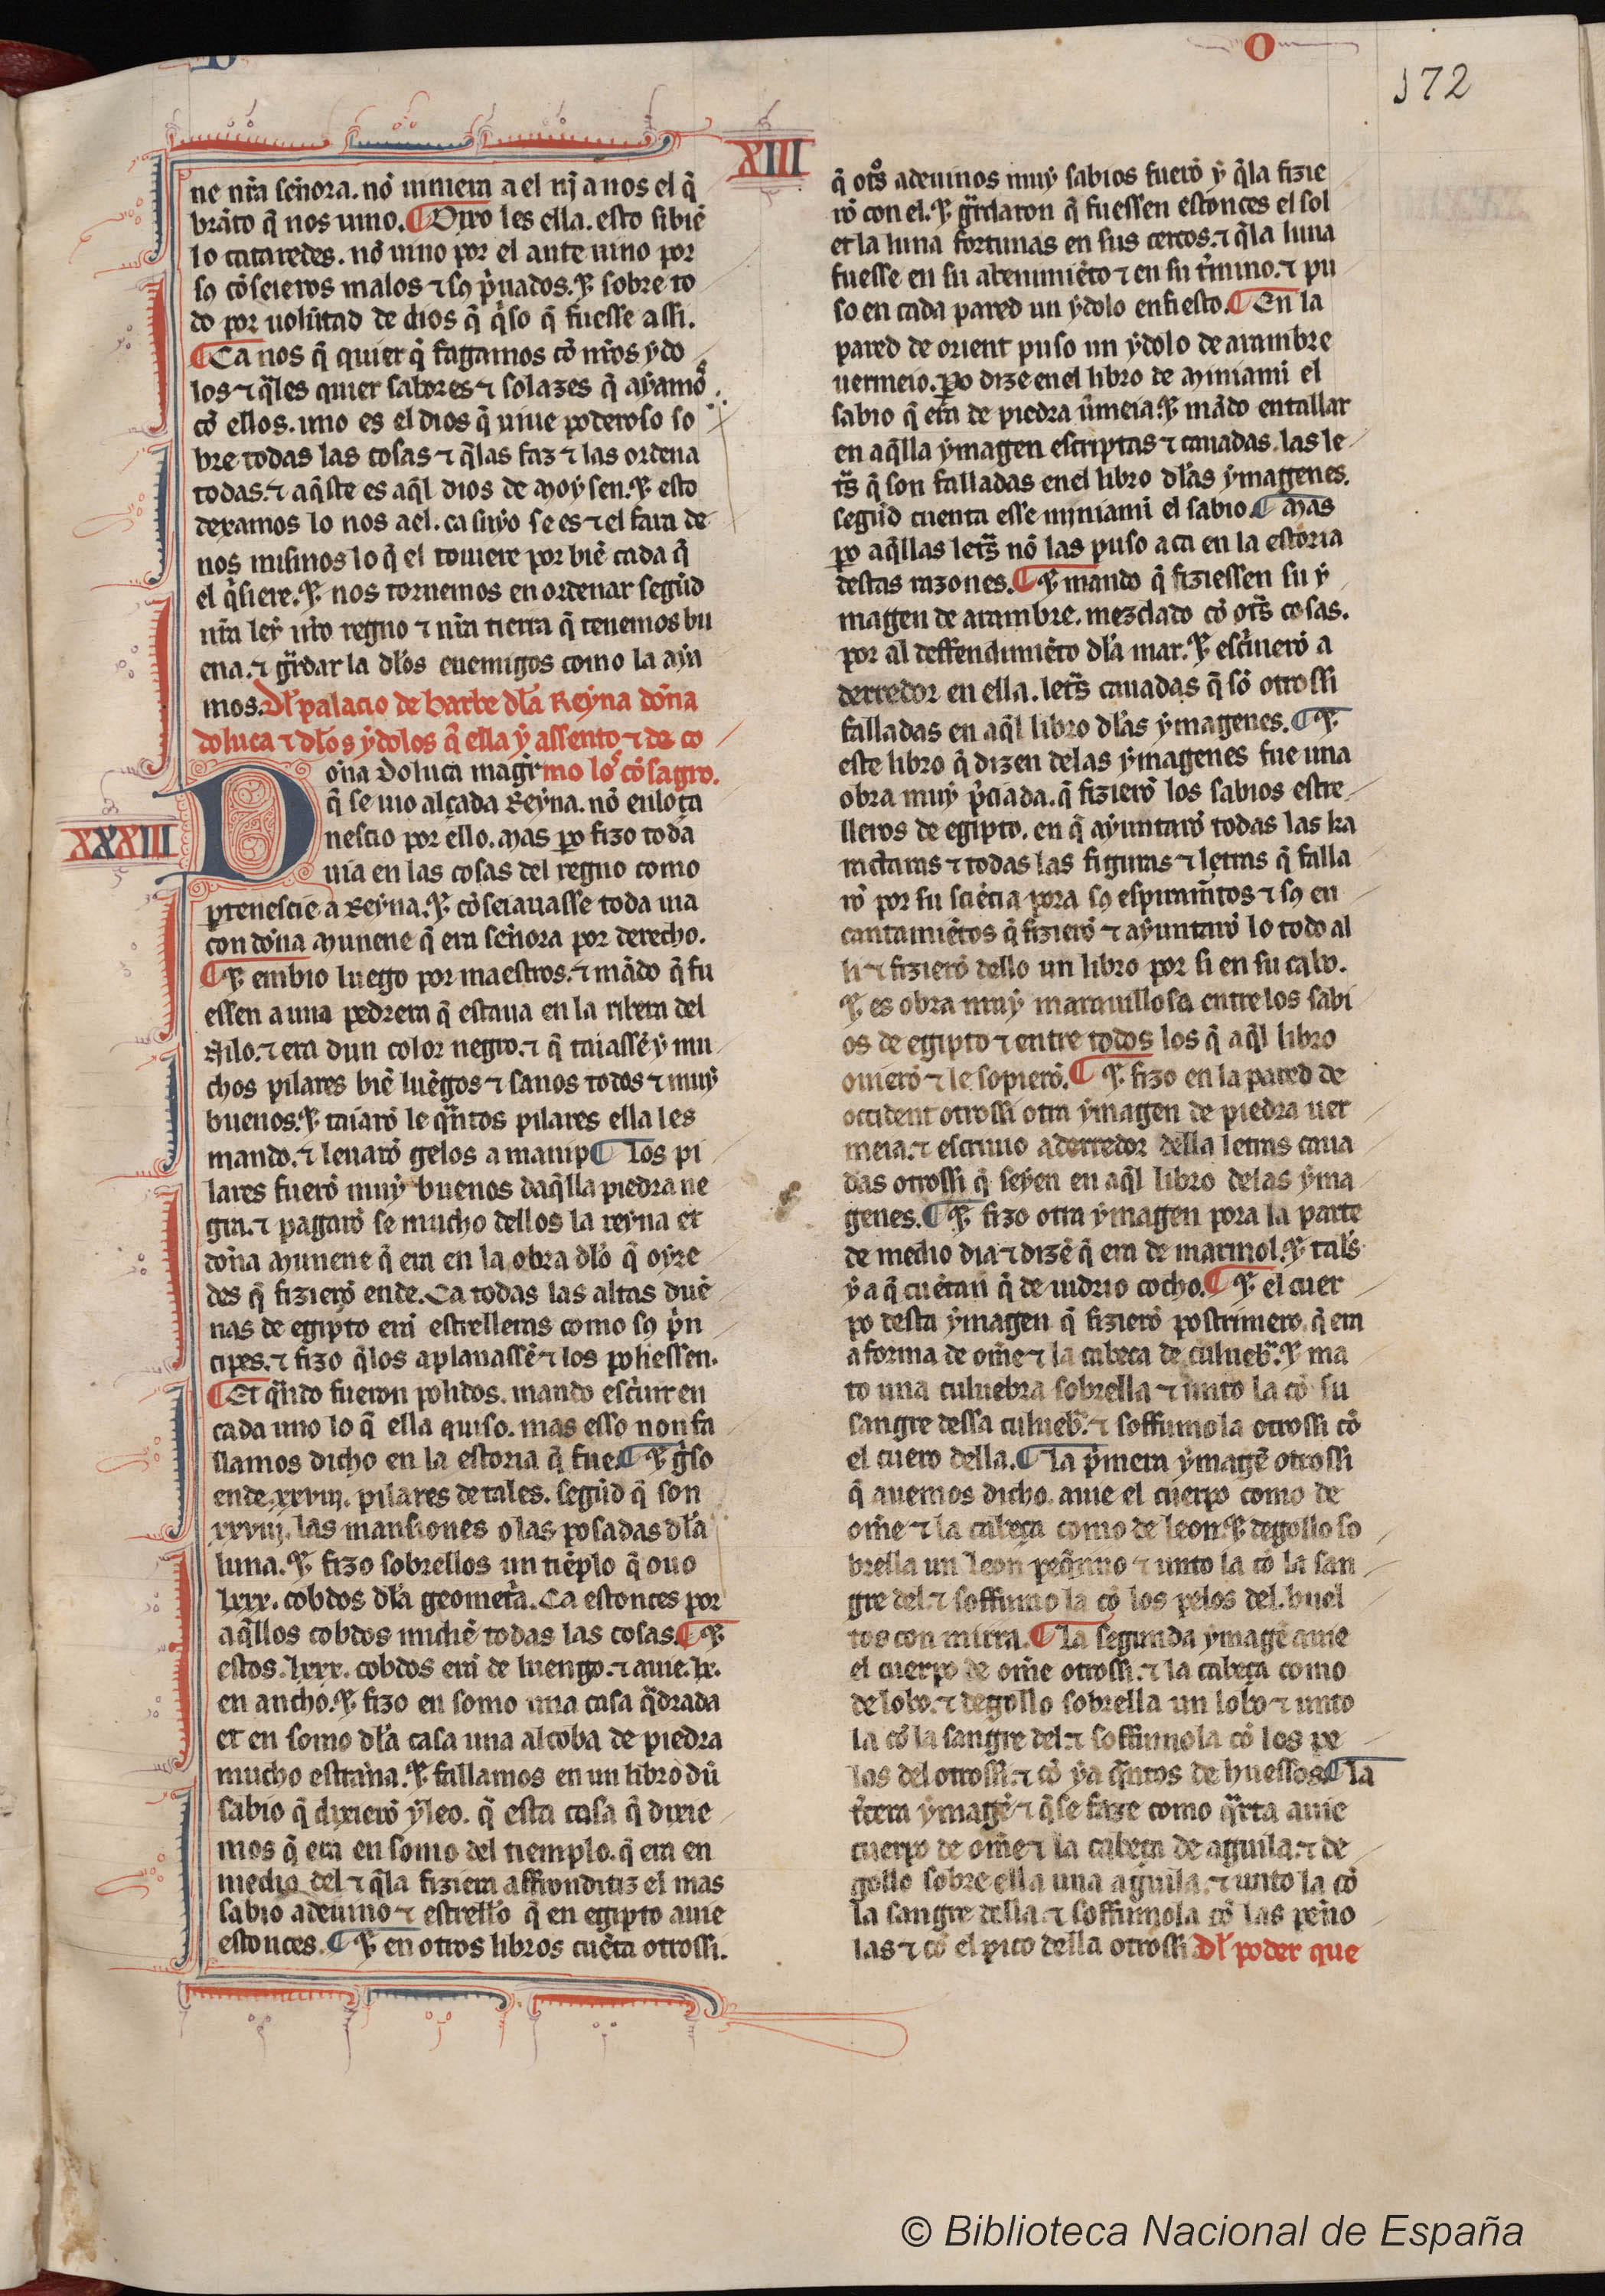 O
172
XIII
ne nr̃a señora. nõ uiniera a el nj̃ a nos el q̃
brãto q̃ nos uino. ¶ Dixo les ella. esto si biẽ
lo cataredes. nõ uino por el ante uino por
sꝯ cõseieros malos ⁊ sꝯ p̃uados. ⁊ sobre to
do por uolũtad de dios q̃ q̃so q̃ fuesse assi.
¶ Ca nos q̃ quier q̃ fagamos cõ nr̃os ydo
los ⁊ q̃les quier sabores ⁊ solazes q̃ ayamõ
cõ ellos. uno es el dios q̃ uiue poderoso so
bre todas las cosas ⁊ q̃las faz ⁊ las ordena
todas. ⁊ aq̃ste es aq̃l dios de moysen. ⁊ esto
dexamos lo nos a el. ca suyo se es ⁊ el fara de
nos mismos lo q̃ el touiere por biẽ cada q̃
el q̃siere. ⁊ nos tornemos en ordenar segũd
nr̃a ley nr̃o regno ⁊ nr̃a tierra q̃ tenemos bu
ena. ⁊ g̃rdar la dl̃os enemigos como la aya
mos. Dl̃ palacio de barbe dl̃a Reyna doña
doluca ⁊ dl̃os ydolos q̃ ella y assento ⁊ de co
mo los cõsagro.
XXXIII
Doña Doluca mag̃r
q̃ se uio alçada Reyna. nõ enloça
nescio por ello. mas p̱o fizo toda
uia en las cosas del regno como
p̱tenescie a Reyna. ⁊ cõseiauasse toda uia
con doña munene q̃ era señora por derecho.
¶ ⁊ embio luego por maestros. ⁊ mãdo q̃ fu
essen a una pedrera q̃ estaua en la ribera del
Nilo. ⁊ era dun color negro. ⁊ q̃ taiassẽ y mu
chos pilares biẽ luẽgos ⁊ sanos todos ⁊ muy
buenos. ⁊ taiarõ le q̃ntos pilares ella les
mando. ⁊ leuarõ gelos a manip ¶ Los pi
lares fuerõ muy buenos daq̃lla piedra ne
gra. ⁊ pagarõ se mucho dellos la reyna et
doña munene q̃ era en la obra dl̃o q̃ oyre
des q̃ fizierõ ende. Ca todas las altas due
nas de egipto erã estrelleras como sꝯ p̃n
cipes. ⁊ fizo q̃los aplanassẽ ⁊ los poliessen.
¶ Et q̃ndo fueron polidos. mando esc̃uir en
cada uno lo q̃ ella quiso. mas esso non fa
llamos dicho en la estoria q̃ fue ¶ ⁊ q̃so
ende. xxviij. pilares de tales. segũd q̃ son
xxviij. las mansiones o las posadas dl̃a
luna. ⁊ fizo sobrellos un tẽplo q̃ ouo
lxxx. cobdos dl̃a geomet̃a. Ca estonces por
aq̃llos cobdos midiẽ todas las cosas. ¶ ⁊
estos. lxxx. cobdos erã de luengo. ⁊ auie. lx.
en ancho. ⁊ fizo en somo una casa q̃drada
et en somo dl̃a casa una alcoba de piedra
mucho estraña. ⁊ fallamos en un libro dũ
sabio q̃ dixierõ yleo. q̃ esta casa q̃ dixie
mos q̃ era en somo del tiemplo. q̃ era en
medio del ⁊ q̃la fiziera affronditiz el mas
sabio adeuino ⁊ estrell̃o q̃ en egipto auie
estonces. ¶ ⁊ en otros libros cuẽta otrossi.
q̃ ot̃s adeuinos muy sabios fuerõ y q̃la fizie
rõ con el. ⁊ g̃rdaron q̃ fuessen estonces el sol
et la luna fortunas en sus cercos. ⁊ q̃la luna
fuesse en su atenimiẽto ⁊ en su t̃mino. ⁊ pu
so en cada pared un ydolo enfiesto. ¶ En la
pared de orient puso un ydolo de arambre
uermeio. p̱o dize en el libro de miniami el
sabio q̃ era de piedra ũmeia. ⁊ mãdo entallar
en aq̃lla ymagen escriptas ⁊ cauadas. las le
t̃s q̃ son falladas en el libro dl̃as ymagenes.
segũd cuenta esse miniami el sabio ¶ Mas
p̱o aq̃llas let̃s nõ las puso aca en la estoria
destas razones. ¶ ⁊ mando q̃ fiziessen su y
magen de arambre. mezclado cõ ot̃s cosas.
por al deffendimiẽto dl̃a mar. ⁊ esc̃iuierõ a
derredor en ella. let̃s cauadas q̃ sõ otrossi
falladas en aq̃l libro dl̃as ymagenes. ¶ ⁊
este libro q̃ dizen delas ymagenes fue una
obra muy p̃ciada. q̃ fizierõ los sabios estre
lleros de egipto. en q̃ ayuntarõ todas las ka
racteras ⁊ todas las figuras ⁊ letras q̃ falla
rõ por su sciẽcia pora sꝯ espiramt̃os ⁊ sꝯ en
cantamiẽtos q̃ fizierõ ⁊ ayuntarõ lo todo al
li ⁊ fizierõ dello un libro por si en su cabo.
⁊ es obra muy marauillosa entre los sabi
os de egipto ⁊ entre todos los q̃ aq̃l libro
ouierõ ⁊ le sopierõ. ¶ ⁊ fizo en la pared de
occident otrossi otra ymagen de piedra uer
meia. ⁊ escriuio aderredor della letras caua
das otrossi q̃ seyen en aq̃l libro delas yma
genes. ¶ ⁊ fizo otra ymagen pora la parte
de medio dia ⁊ dizẽ q̃ era de marmol. ⁊ tal̃s
y a q̃ cuẽtan q̃ de uidrio cocho. ¶ ⁊ el cuer
po desta ymagen q̃ fizierõ postrimero. q̃ era
a forma de om̃e ⁊ la cabeça de culueb̃. ⁊ ma
to una culuebra sobrella ⁊ unto la cõ su
sangre dessa culueb̃. ⁊ soffumola otrossi cõ
el cuero della. ¶ La p̃mera ymagẽ otrossi
q̃ auemos dicho. auie el cuerpo como de
om̃e ⁊ la cabeça como de leon. ⁊ degollo so
brella un leon peq̃nno ⁊ unto la cõ la san
gre del. ⁊ soffumo la cõ los pelos del. buel
tos con mirra. ¶ La segunda ymagẽ auie
el cuerpo de om̃e otrossi. ⁊ la cabeça como
de lobo. ⁊ degollo sobrella un lobo ⁊ unto
la cõ la sangre del. ⁊ soffumola cõ los pe
los del otrossi. ⁊ cõ ya q̃ntos de huessos ¶ La
t̃cera ymagẽ ⁊ q̃se faze como q̃rta auie
cuerpo de om̃e ⁊ la cabeça de aguila. ⁊ de
gollo sobre ella una aguila. ⁊ unto la cõ
la sangre della. ⁊ soffumola cõ las peño
las ⁊ cõ el pico della otrossi Dl̃ poder que
© Biblioteca Nacional de España